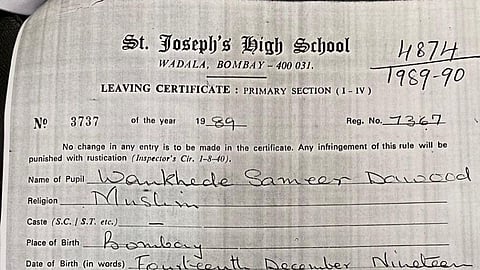 St. Joseph's High School
WADALA, BOMBAY - 400 031.
4874
1989-90
LEAVING CERTIFICATE : PRIMARY SECTION ( I - IV )
No 3737 of the year 1989 Reg. No. 7367
No change in any entry is to be made in the certificate. Any infringement of this rule will be
punished with rustication (Inspector's Cir. 1-8-40).
Name of Pupil Wankhede Sameer Dawood
Religion Muslim
Caste (S.C. / S.T. etc.) —
Place of Birth Bombay
Date of Birth (in words) Fourteenth December Nineteen